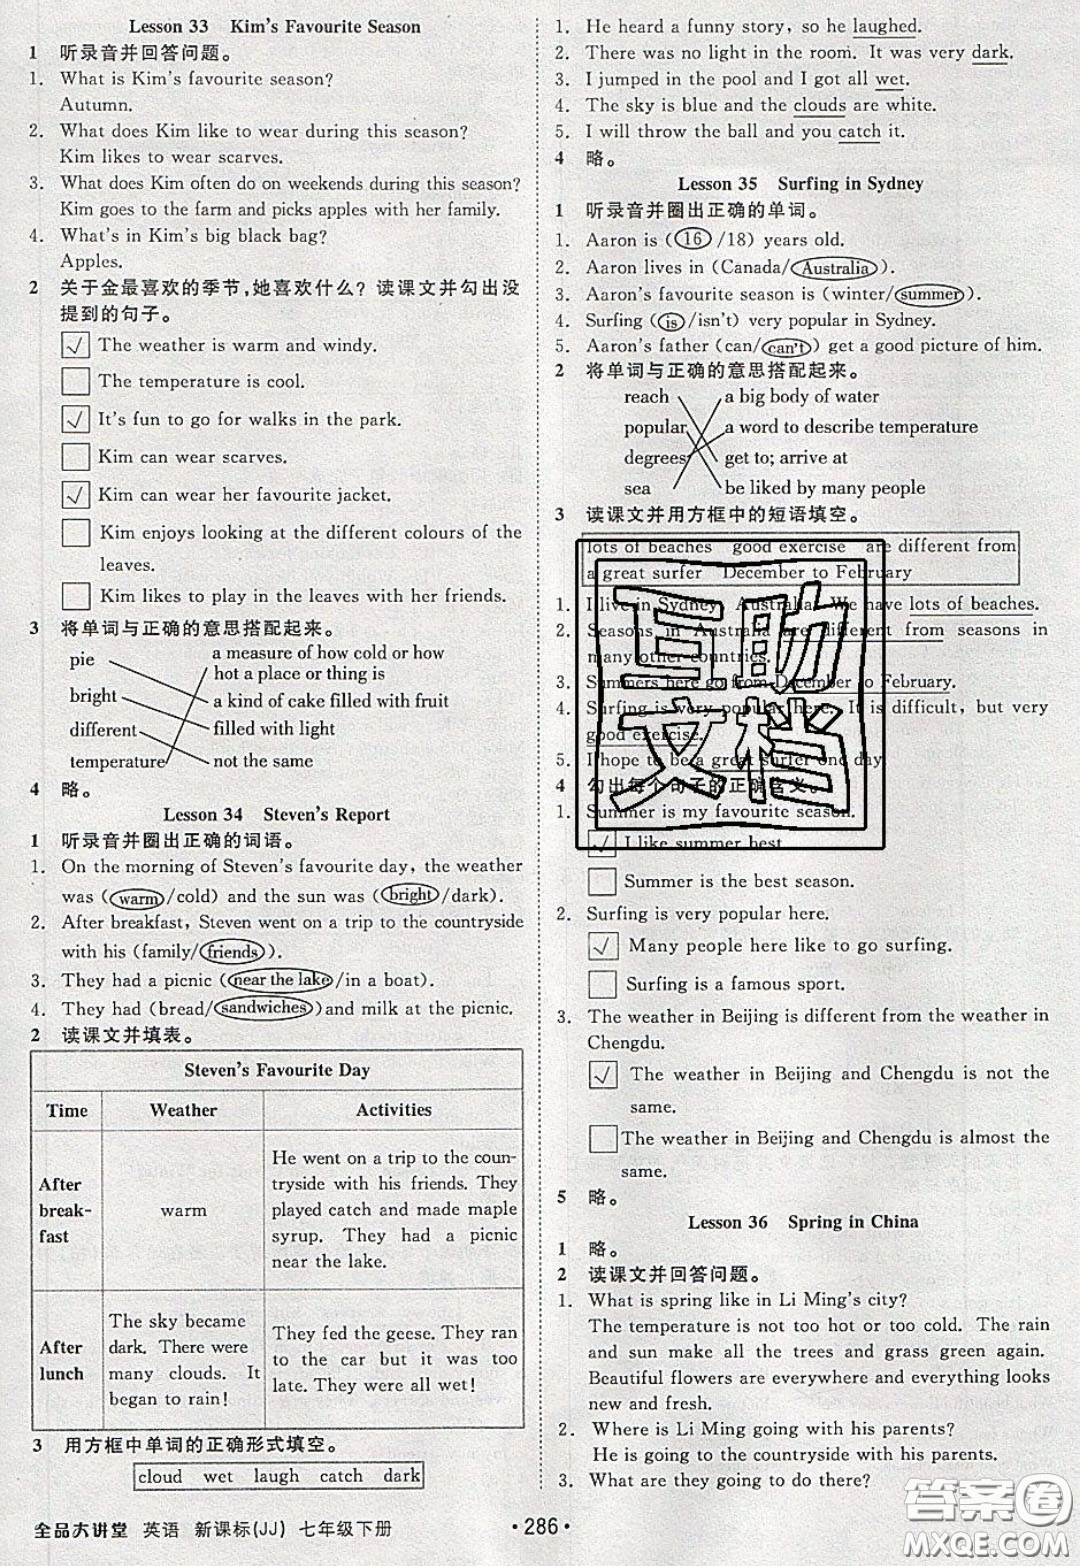 Lesson 33 Kim's Favourite Season
1 听录音并回答问题。
1. What is Kim's favourite season?
Autumn.
2. What does Kim like to wear during this season?
Kim likes to wear scarves.
3. What does Kim often do on weekends during this season?
Kim goes to the farm and picks apples with her family.
4. What's in Kim's big black bag?
Apples.
2 关于金最喜欢的季节,她喜欢什么? 读课文并勾出没
提到的句子。
√ The weather is warm and windy.
The temperature is cool.
√ It's fun to go for walks in the park.
Kim can wear scarves.
√ Kim can wear her favourite jacket.
Kim enjoys looking at the different colours of the
leaves.
Kim likes to play in the leaves with her friends.
3 将单词与正确的意思搭配起来。
pie
bright
different
temperature
a measure of how cold or how
hot a place or thing is
a kind of cake filled with fruit
filled with light
not the same
4 略。
Lesson 34 Steven's Report
1 听录音并圈出正确的词语。
1. On the morning of Steven's favourite day, the weather
was (warm/cold) and the sun was (bright/dark).
2. After breakfast, Steven went on a trip to the countryside
with his (family/friends).
3. They had a picnic (near the lake/in a boat).
4. They had (bread/sandwiches)and milk at the picnic.
2 读课文并填表。
Steven's Favourite Day
Time Weather Activities
After
break-
fast
warm
He went on a trip to the coun-
tryside with his friends. They
played catch and made maple
syrup. They had a picnic
near the lake.
After
lunch
The sky became
dark. There were
many clouds. It
began to rain!
They fed the geese. They ran
to the car but it was too
late. They were all wet!
3 用方框中单词的正确形式填空。
cloud wet laugh catch dark
1. He heard a funny story, so he laughed.
2. There was no light in the room. It was very dark.
3. I jumped in the pool and I got all wet.
4. The sky is blue and the clouds are white.
5. I will throw the ball and you catch it.
4 略。
Lesson 35 Surfing in Sydney
1 听录音并圈出正确的单词。
1. Aaron is (16/18) years old.
2. Aaron lives in (Canada/Australia).
3. Aaron's favourite season is (winter/summer).
4. Surfing (is/isn't) very popular in Sydney.
5. Aaron's father (can/can't) get a good picture of him.
2 将单词与正确的意思搭配起来。
reach
popular
degrees
sea
a big body of water
a word to describe temperature
get to; arrive at
be liked by many people
3 读课文并用方框中的短语填空。
lots of beaches good exercise are different from
a great surfer December to February
1. I live in Sydney, Australia. We have lots of beaches.
2. Seasons in Australia are different from seasons in
many other countries.
3. Summers here go from December to February.
4. Surfing is very popular here. It is difficult, but very
good exercise.
5. I hope to be a great surfer one day.
4 勾出每个句子的正确含义。
1. Summer is my favourite season.
√ I like summer best.
Summer is the best season.
2. Surfing is very popular here.
√ Many people here like to go surfing.
Surfing is a famous sport.
3. The weather in Beijing is different from the weather in
Chengdu.
√ The weather in Beijing and Chengdu is not the
same.
The weather in Beijing and Chengdu is almost the
same.
5 略。
Lesson 36 Spring in China
1 略。
2 读课文并回答问题。
1. What is spring like in Li Ming's city?
The temperature is not too hot or too cold. The rain
and sun make all the trees and grass green again.
Beautiful flowers are everywhere and everything looks
new and fresh.
2. Where is Li Ming going with his parents?
He is going to the countryside with his parents.
3. What are they going to do there?
互助
文档
答案圈
MXQE.COM
全品大讲堂 英语 新课标(JJ) 七年级下册
·286·